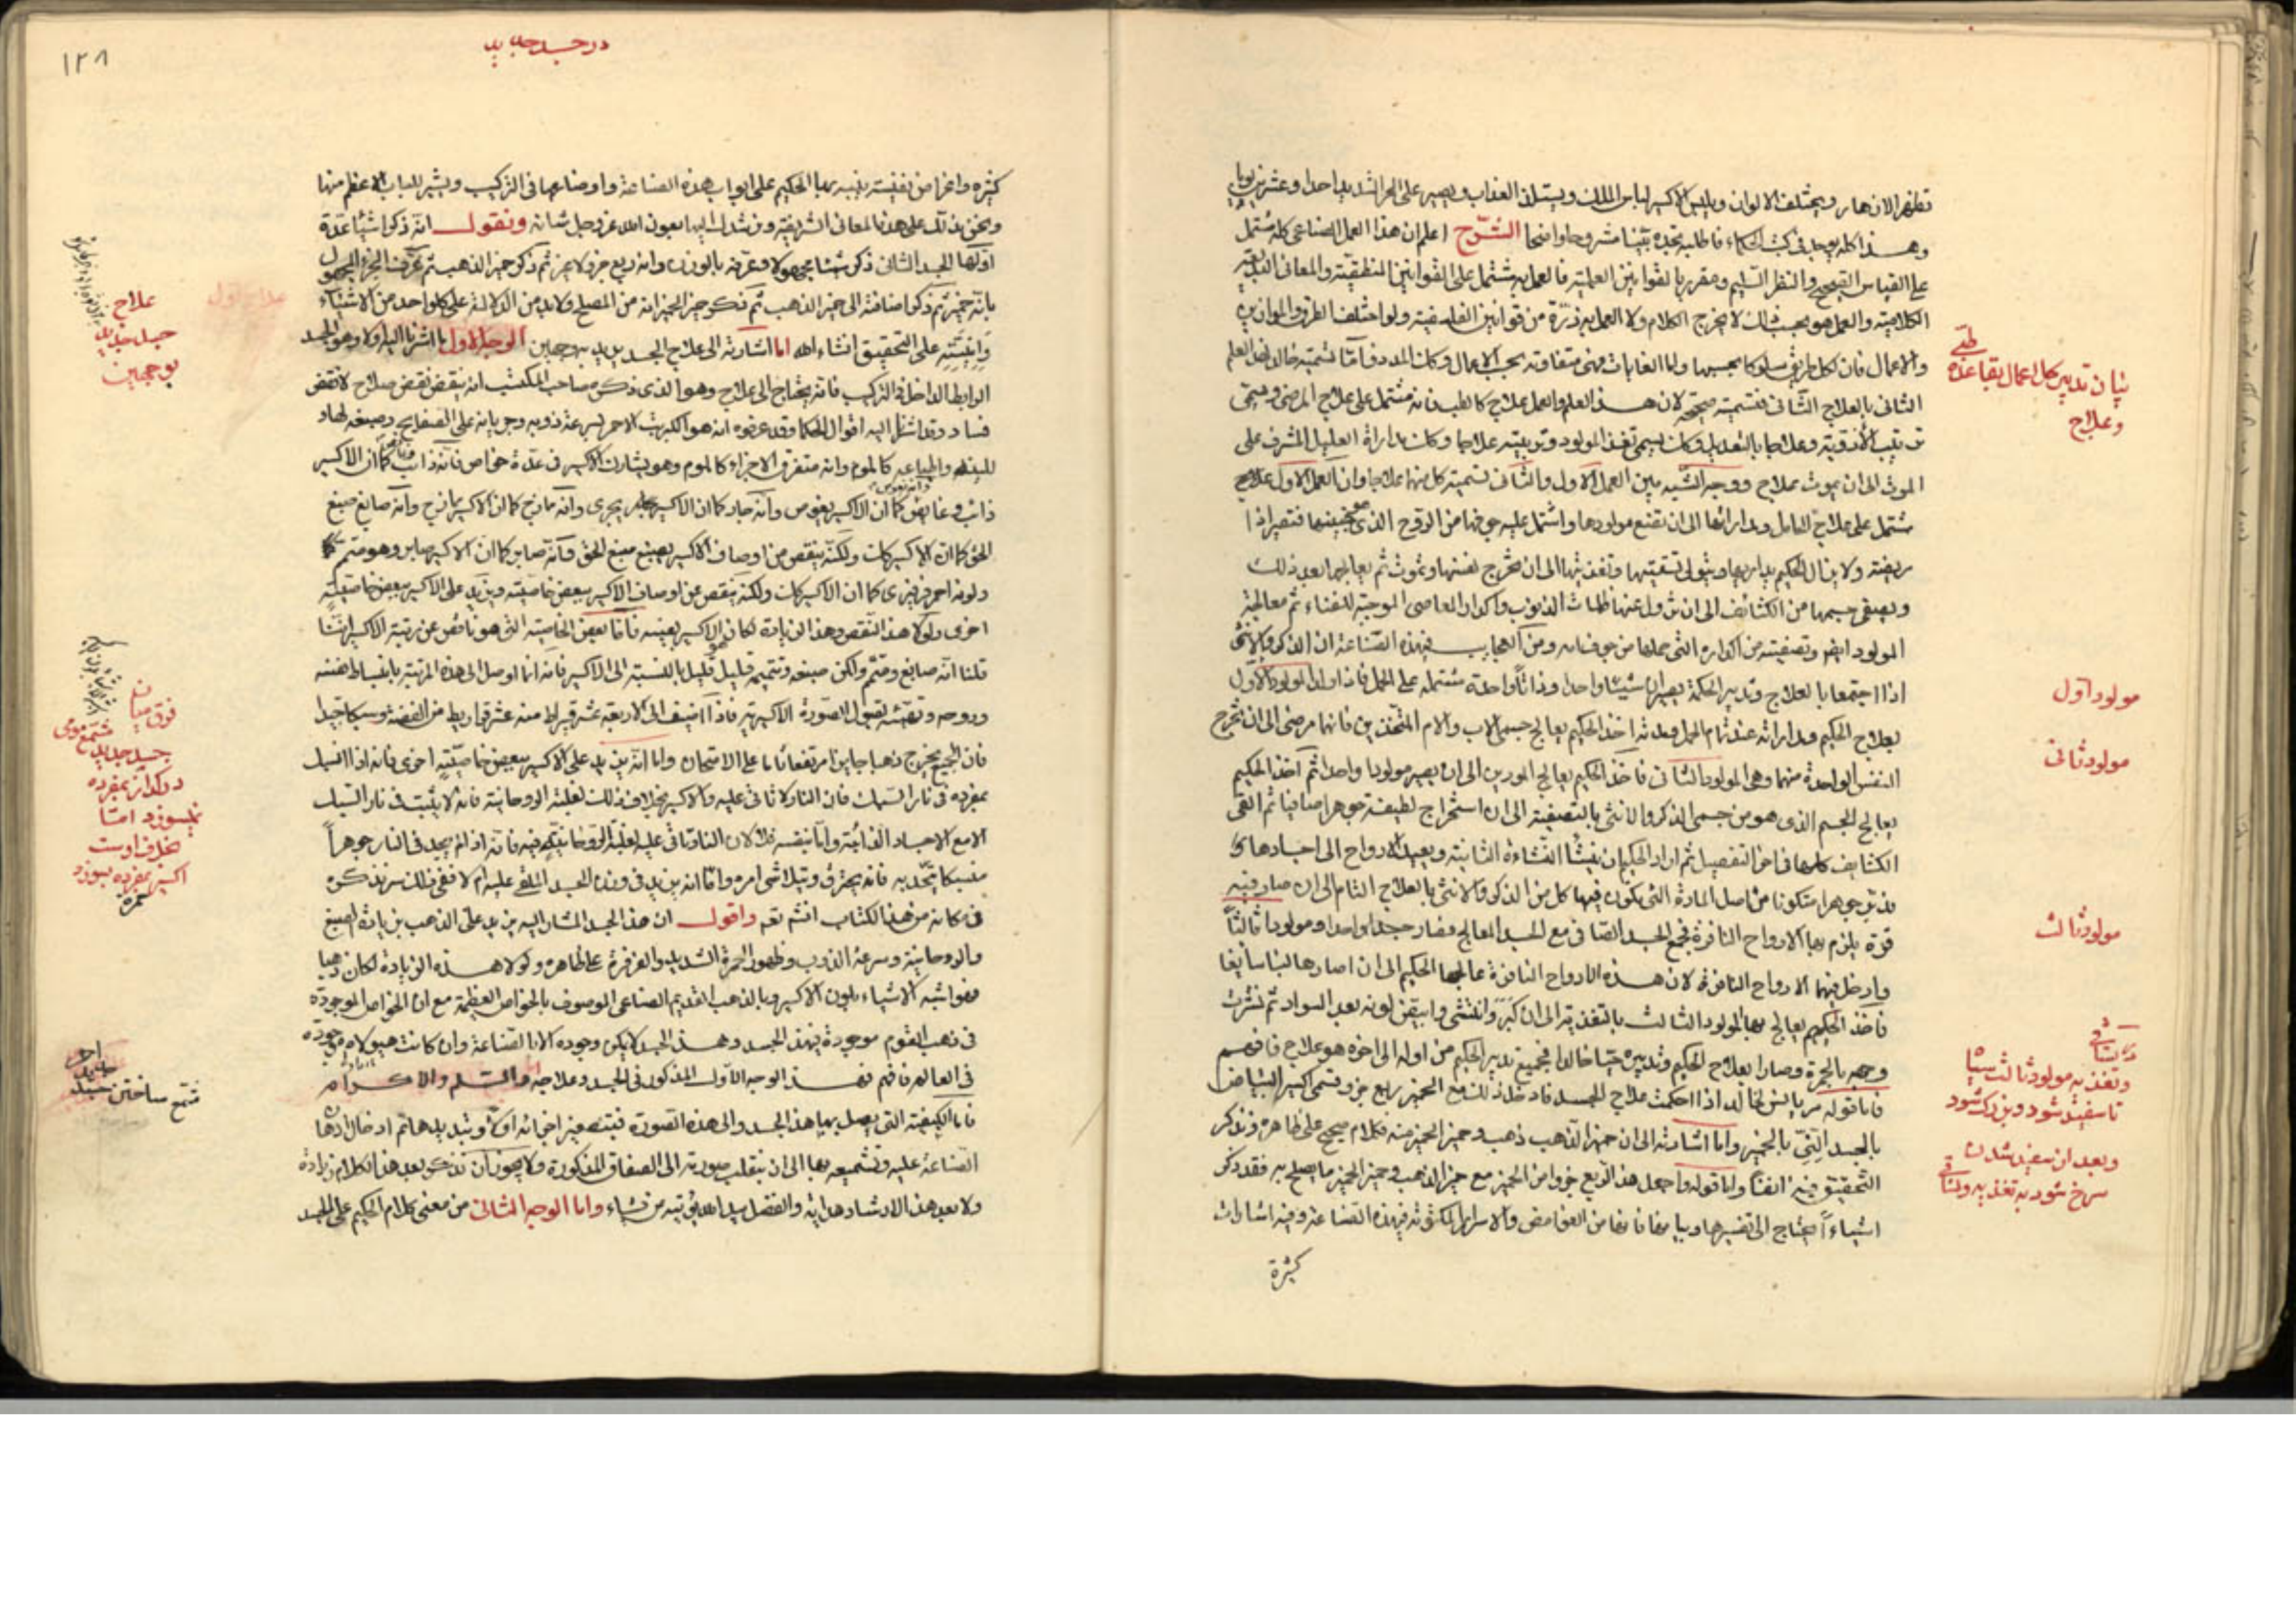 تظهر الازهار ويختلف الالوان ويلبس الاكسير لباس الملك ويستلذ العذاب ويصبر على الحر الشديد احدا وعشرين يوما
وهذا كله يوجد في كتب الحكماء فاطلبه تجده بينا مشروحا واضحا الشرح اعلم ان هذا العمل الصناعى كله مشتمل
على القياس الصحيح والنظر السليم ومقرر بالقوانين العلمية فالعمل به مشتمل على القوانين المنطقية والمعانى
الكلامية والعمل هو بحسب ذلك لا يخرج الكلام ولا العمل به ذرة من قوانين الفلسفية ولو اختلف الطرق والموازين
والاعمال فان لكل طريق سلوكا بحسبها واما الغايات فهى متفاوتة بحسب الاعمال وكان المدد فاما تسميته خالد لفصل العلم
الثانى بالعلاج الثانى فتسميته صحيحة لان هذا العلم والعمل علاج كالطب فانه مشتمل على علاج المرضى
ترتيب الأدوية وعلاجها بالتعديل وكان يسمى تغذية المولود وتربيته علاجا وكان مداراة العليل المشرف على
الموت الى ان يموت بعلاج ووجه الشبه بين العمل الاول والثانى تسمية كل منهما علاجا وان العمل الاول علاج
مشتمل على علاج الحامل ومداراتها الى ان تضع مولودها واشتمل عليه جوفها من الروح الذى
مريضة ولا يزال الحكيم يداريها ويتولى تسقيتها وتغذيتها الى ان تخرج نفسها وتموت ثم يعالجها بعد ذلك
ويصفى جسمها من الكثائف الى ان تزول عنها ظلمات الذنوب واكدار المعاصى الموجبة للفناء ثم معالجة
المولود ايضا وتصفيته من اكداره التى حملها من جوف امه ومن العجايب في هذه الصناعة ان الذكر والانثى
اذا اجتمعا بالعلاج وتدبير الحكمة يصيران شيئا واحدا وذاتا واحدة مشتملة على الحمل فاذا ولد المولود الاول
بعلاج الحكيم ومداراته عند تمام الحمل وولدته اخذ الحكيم يعالج جسمى الاب والام المتحدين فانهما مرضى الى ان تخرج
النفس الواحدة منهما وهى المولود الثانى فاخذ الحكيم يعالج المولودين الى ان يصير مولودا واحدا ثم اخذ الحكيم
يعالج الجسم الذى هو من جسمى الذكر والانثى بالتصفية الى ان استخرج لطيفة جوهرا صافيا ثم القى
الكثايف كلها في اخر التفصيل ثم اراد الحكيم ان ينشأ النشاءة الثانية ويعيد الارواح الى اجسادها
جوهرا متكونا من اصل المادة التى يتكون فيها كل من الذكر والانثى بالعلاج التام الى ان صار فيه
قوة يلزم بها الارواح النافرة فجمع الجسد الصافى مع الجسد المعالج فصار جسدا واحدا ومولودا ثالثا
وادخل فيهما الارواح النافرة لان هذه الارواح النافرة عالجها الحكيم الى ان اصارها لبنا سايغا
فاخذ الحكيم يعالج بها المولود الثالث بالتغذية الى ان كبر وانتشى وابيض لونه بعد السواد ثم تشرب
وجهه بالحمرة وصار بعلاج الحكيم وتدبيره حيا خالدا فجميع تدبير الحكيم من اوله الى اخره هو علاج فافهم
فاما قوله مريانس لخالد اذا احكمت علاج الجسد فادخل ذلك مع الخمير ربع جزء وتسمى اكسير البياض
بالجسد النقى بالخمير واما اشارته الى ان خمير الذهب ذهب وخمير الخمير منه فكلام صحيح على ظاهره ونذكر
التحقيق فيه انفا واما قوله واجعل هذا الربع جزوا من الخمير مع خمير الذهب وخمير الخمير ما يصلح به فقد ذكر
اشياء احتاج الى تفسيرها وبيانها فانها من الغوامض والاسرار المكتومة في هذه الصناعة وفيه اشارات
كثيرة
بيان تدبير كل اعمال بقاعده طبى
وعلاج
مولود اول
مولود ثانى
مولود ثالث
وتغذيه مولود ثالث
تا سفيد شود وبزرك شود
وبعد از سفيد شدن
سرخ شود به تغذيه
در جسد جديد
١٢٨
كثيرة واغراض نفيسة ينبه بها الحكيم على ابواب هذه الصناعة واوضاعها في التركيب ويشير للباب الاعظم منها
ونحن ندلك على هذه المعانى الشريفة ونرشدك اليها بعون الله عز وجل شانه ونقول انه ذكر اشياء عدة
اولها الجسد الثانى ذكر شيئا مجهولا وعرفه بالوزن وانه ربع جزو لا جزء ثم ذكر خمير الذهب ثم عرف الجزء المجهول
بانه خمير ثم ذكر اضافته الى خمير الذهب ثم ذكر خمير الخمير انه من المصلح ولا بد من الدلالة على كل واحد من الاشياء
وابينه على التحقيق انشاء الله اما اشارته الى علاج الجسد يريد به وجهين الوجه الاول ما اشرنا اليه اولا وهو الجسد
الرابط الداخل في التركيب فانه يحتاج الى علاج وهو الذى ذكره صاحب المكتسب انه ينقض نقض صلاح لا نقض
فساد وقد اشار اليه اقوال الحكما وقد عرفوه انه هو الكبريت الاحمر لسرعة ذوبه وجريانه على الصفايح وصبغه لها
كالموم وانه متفرق الاجزاء كالموم وهو يشارك الاكسير في عدة خواص فانه ذائب كما ان الاكسير
ذائب وغايص كما ان الاكسير يغوص وانه جار كما ان الاكسير يجرى وانه مازج كما ان الاكسير مازج وانه صابغ صبغ
الحق كما ان الاكسير كذلك ولكنه ينقص من اوصاف الاكسير يصبغ صبغ الحق وانه صابر كما ان الاكسير صابر وهو متمم
ولونه احمر فرفيرى كما ان الاكسير كذلك ولكنه ينقص عن اوصاف الاكسير ببعض خاصيته ويزيد على الاكسير ببعض خاصيته
اخرى ولولا هذا النقص وهذا الزيادة لكان الاكسير بعينه فاما بعض الخاصية التى هو ناقص عن رتبة الاكسير
قلنا انه صابغ ومتمم ولكن صبغه وتتميمه قليل قليل بالنسبة الى الاكسير فانه انما اوصل الى هذه المرتبة بانبساط نفسه
وروحه وتهيئه لقبول الصورة الاكسيرية فاذا اضيف الى الاربعة عشر قيراط منه عشر قراريط من الفضة وسبكا جيدا
فان الجميع يخرج ذهبا جايزا مرتفعا ثابتا على الامتحان واما انه يزيد على الاكسير ببعض خاصيته اخرى فانه اذا اسبك
بمفرده في نار السبك فان النار لا تاتى عليه والاكسير بخلاف ذلك لغلبة الروحانية فانه لا يثبت في نار السبك
الا مع الاجساد الذائبة واما بنفسه فلا لان النار تاتى عليه لغلبة الروحانية فيه فانه اذا لم يجد في النار جوهرا
منسبكا يتحد به فانه يحترق ويتلاشى امره واما انه يزيد في وزن الجسد الملقى عليه ام لا ففى ذلك سر نذكره
في مكانه من هذا الكتاب انشاء الله تعالى واقول ان هذا الجسد المشار اليه يزيد على الذهب بزيادة الصبغ
والروحانية وسرعة الذوب وظهور الحمرة الشديدة والفرفرية على ظاهره ولولا هذه الزيادة لكان ذهبا
فهو اشبه الاشياء بلون الاكسير وبالذهب القديم الصناعى الموصوف بالخواص العظيمة مع ان الخواص الموجودة
في ذهب القوم موجودة في هذا الجسد وهذا الجسد لا يمكن وجوده الا بالصناعة وان كانت هيولاه موجودة
في العالم فافهم فهذا الوجه الاول المذكور في الجسد وعلاجه والسلم والاكرام
فاما الكيفية التى يصل بها هذا الجسد والى هذه الصورة
الصناعة عليه وتشميعه بها الى ان ينقلب صورته الى الصفات المذكورة ولا يجوز ان نذكر بعد هذا الكلام زيادة
ولا بعد هذا الارشاد هداية والفضل بيد الله يؤتيه من يشاء واما الوجه الثانى من معنى كلام الحكيم على الجسد
علاج اول
علاج
جسد جديد
بوجهين
فرق ميان
شمع مومى
جسد جديد
در كداز بمفرده
نميسوزد اما
بخلاف اوست
اكسير بمفرده بسوزد
شمع ساختن جسد